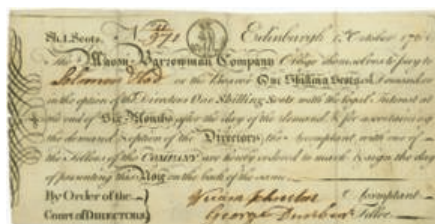 Sh. 1. Scots. No Edinburgh 1st October 176
the Mason Barrowman Company Oblige themselves to pay to
Solomon or the Bearer One Shilling Scots on Demand or
in the option of the Directors One Shilling Scots with the legal Interest at
the end of Six Months after the day of the demand & for ascertaining
the demand & option of the Directors the Accomptant with one of
the Tellers of the COMPANY are hereby ordered to mark & sign the day
of presenting this Note on the back of the same
By Order of the Accomptant
Court of DIRECTORS George Teller